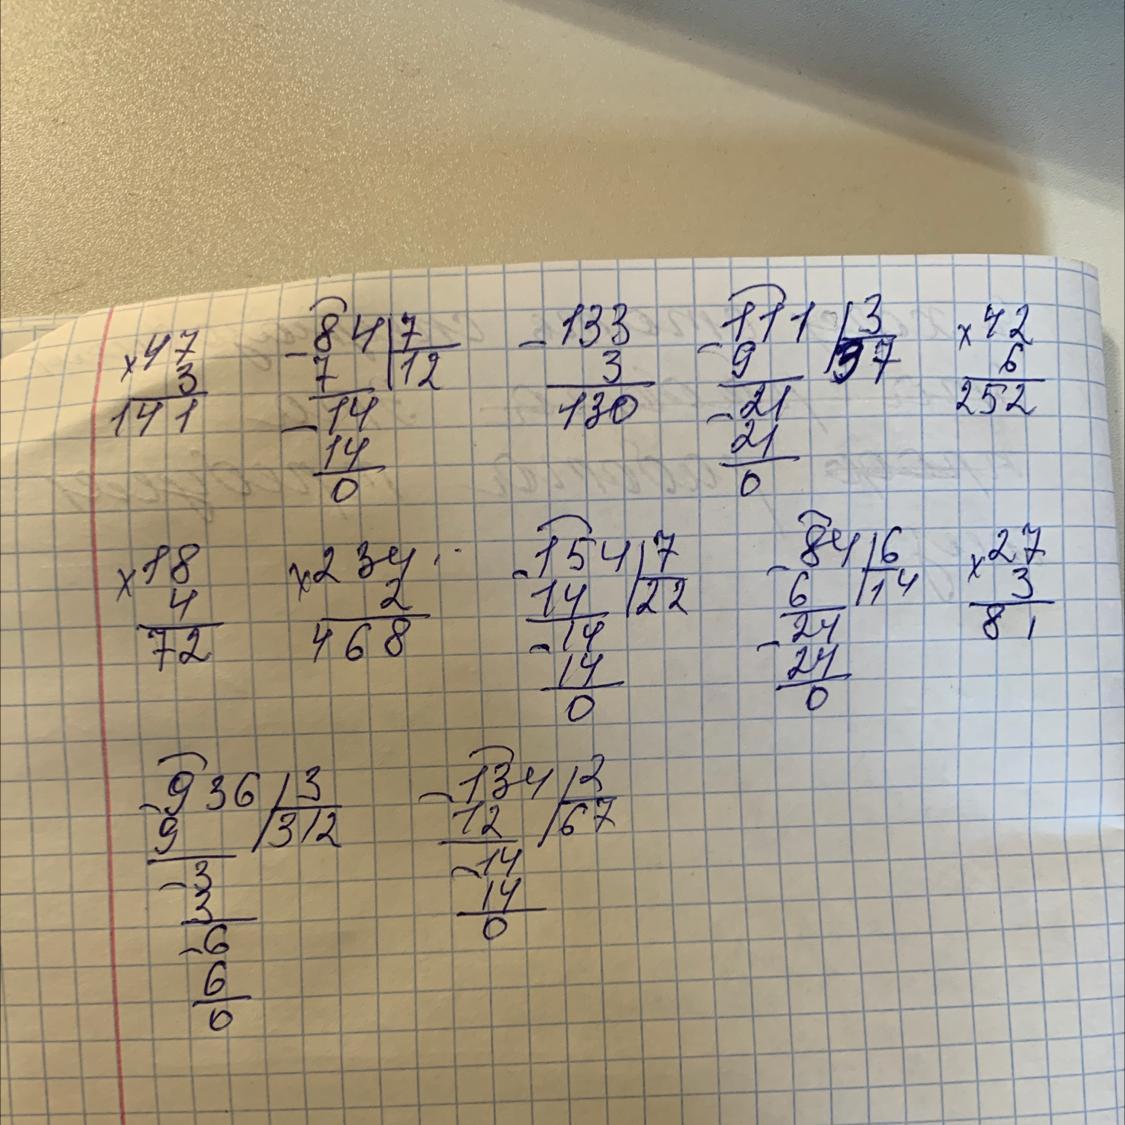 ×47 -84|7 -133 -111|3 ×42
3 7 |12 3 9 |37 6
141 -14 130 -21 252
14 21
0 0
×18 ×234 -154|7 -84|6 ×27
4 2 14 |22 6 |14 3
72 468 -14 -24 81
14 24
0 0
-936|3 -134|2
9 |312 12 |67
-3 -14
3 14
-6 0
6
0